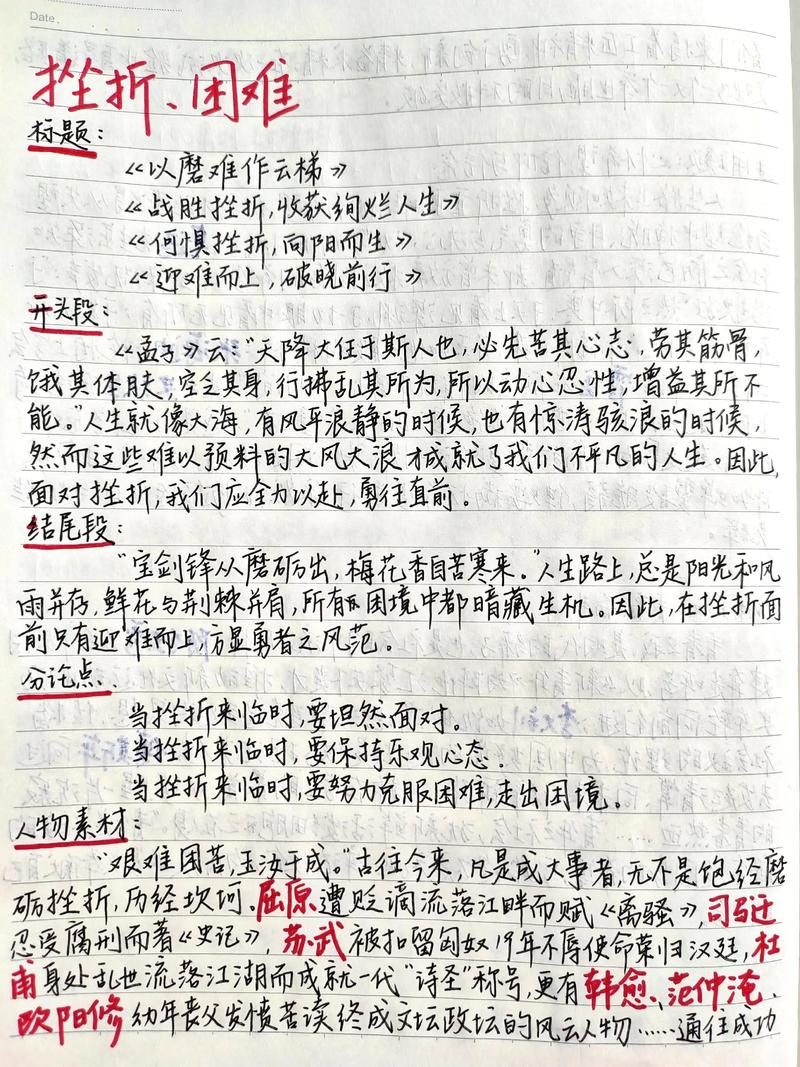 Date
挫折、困难
标题：
《以磨难作云梯》
《战胜挫折,收获绚烂人生》
《何惧挫折,向阳而生》
《迎难而上,破晓前行》
开头段：
《孟子》云:“天降大任于斯人也,必先苦其心志,劳其筋骨,
饿其体肤,空乏其身,行拂乱其所为,所以动心忍性,增益其所不
能。”人生就像大海,有风平浪静的时候,也有惊涛骇浪的时候,
然而这些难以预料的大风大浪才成就了我们不平凡的人生。因此,
面对挫折,我们应全力以赴,勇往直前。
结尾段：
“宝剑锋从磨砺出,梅花香自苦寒来。”人生路上,总是阳光和风
雨并存,鲜花与荆棘并肩,所有困境中都暗藏生机。因此,在挫折面
前只有迎难而上,方显勇者之风范。
分论点：
当挫折来临时,要坦然面对。
当挫折来临时,要保持乐观心态.
当挫折来临时,要努力克服困难,走出困境。
人物素材：
“艰难困苦,玉汝于成。”古往今来,凡是成大事者,无不是饱经磨
砺挫折,历经坎坷.屈原遭贬谪流落江畔而赋《离骚》,司马迁
忍受腐刑而著《史记》,苏武被扣留匈奴19年不辱使命荣归汉廷,杜
甫身处乱世流落江湖而成就一代“诗圣”称号,更有韩愈、范仲淹、
欧阳修幼年丧父发愤苦读终成文坛政坛的风云人物……通往成功